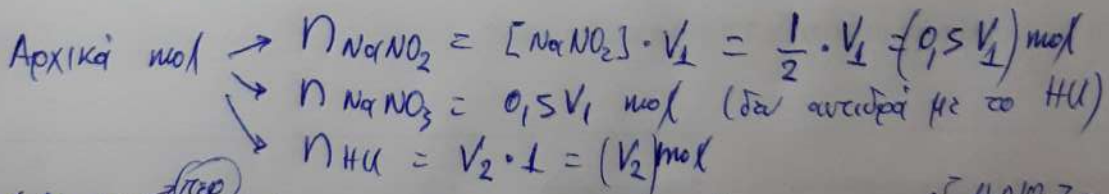 Αρχικά mol → n NaNO₂ = [NaNO₂] · V₁ = 1/2 · V₁ = (0,5 V₁) mol
→ n NaNO₃ = 0,5 V₁ mol (δεν αντιδρά με το HCl)
→ n HCl = V₂ · 1 = (V₂) mol